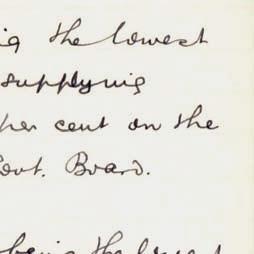 the lowest
supplying
per cent on the
Govt. Board.
being the lowest